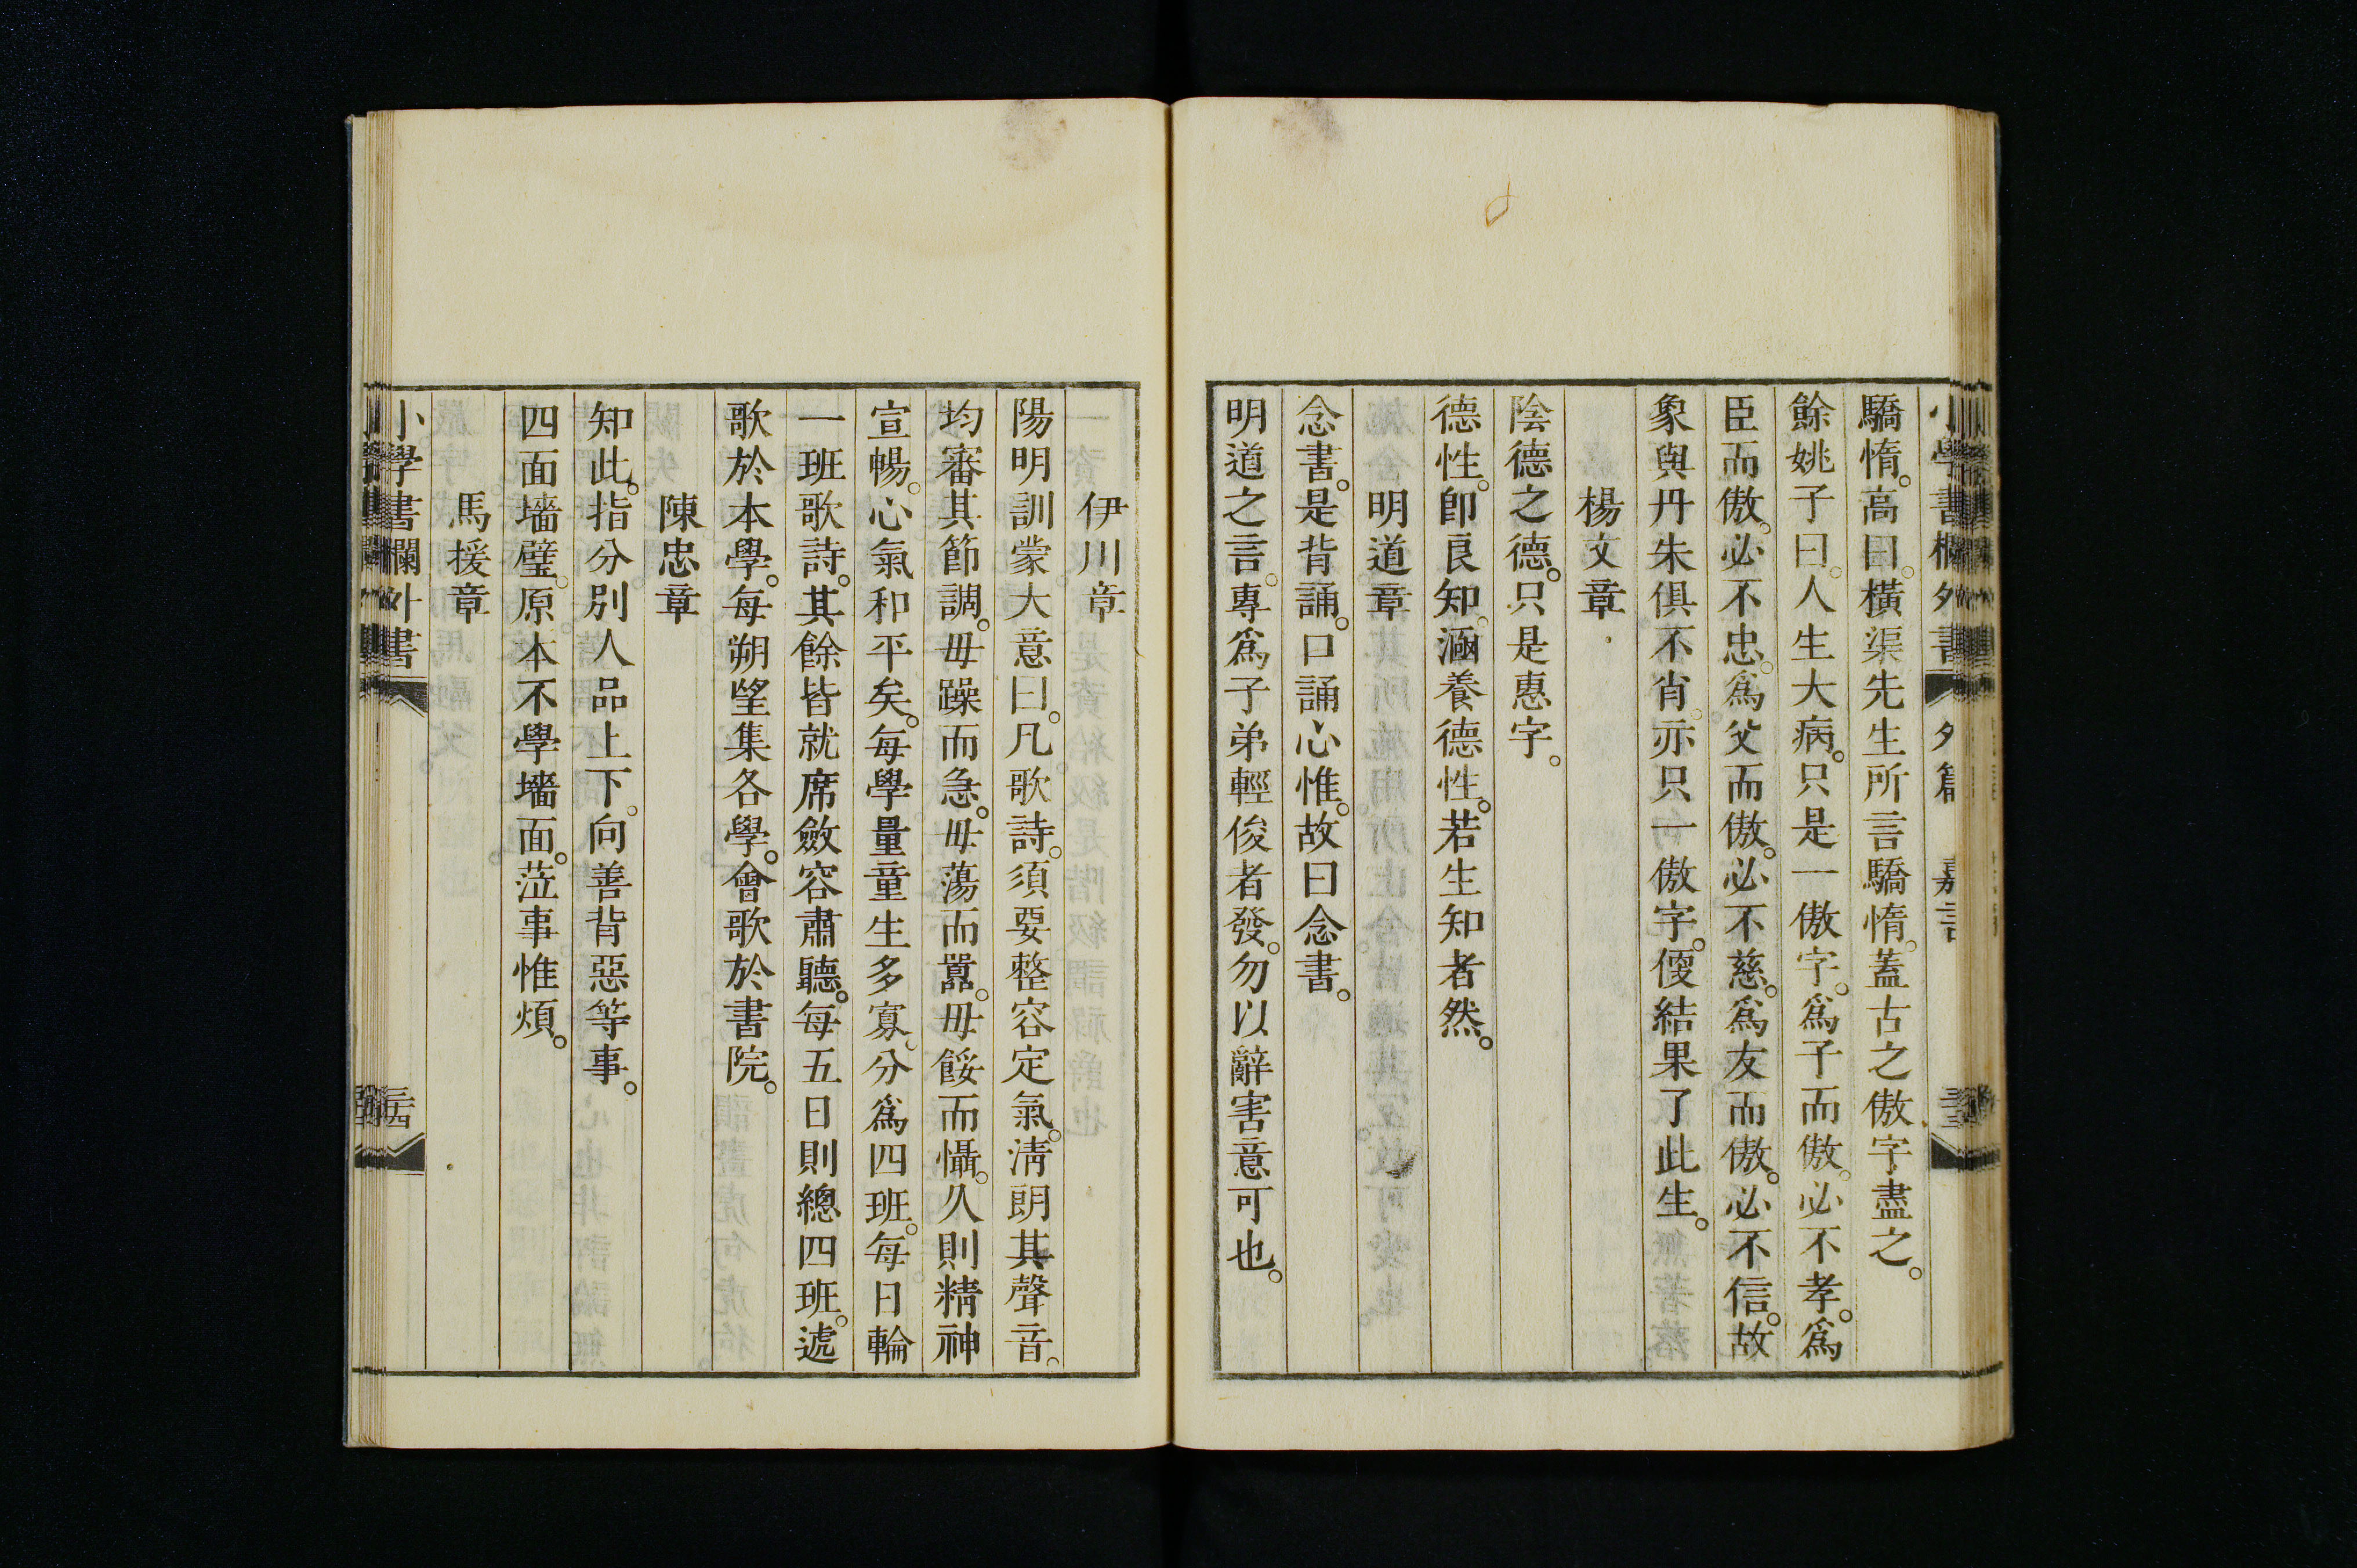 小學書欄外書 外篇 嘉言
驕惰。高曰。橫渠先生所言驕惰。蓋古之傲字盡之。
餘姚子曰。人生大病。只是一傲字。爲子而傲。必不孝。爲
臣而傲。必不忠。爲父而傲。必不慈。爲友而傲。必不信。故
象與丹朱俱不肖。亦只一傲字。便結果了此生。
楊文章
陰德之德。只是惠字。
德性。卽良知。涵養德性。若生知者然。
明道章
念書。是背誦。口誦心惟。故曰念書。
明道之言。專爲子弟輕俊者發。勿以辭害意可也。
伊川章
陽明訓蒙大意曰。凡歌詩。須要整容定氣。淸朗其聲音。
均審其節調。毋躁而急。毋蕩而囂。毋餒而懾。久則精神
宣暢。心氣和平矣。每學量童生多寡。分爲四班。每日輪
一班歌詩。其餘皆就席斂容肅聽。每五日則總四班。遞
歌於本學。每朔望集各學。會歌於書院。
陳忠章
知此。指分別人品上下。向善背惡等事。
四面墻壁。原本不學墻面。莅事惟煩。
馬援章
小學書欄外書